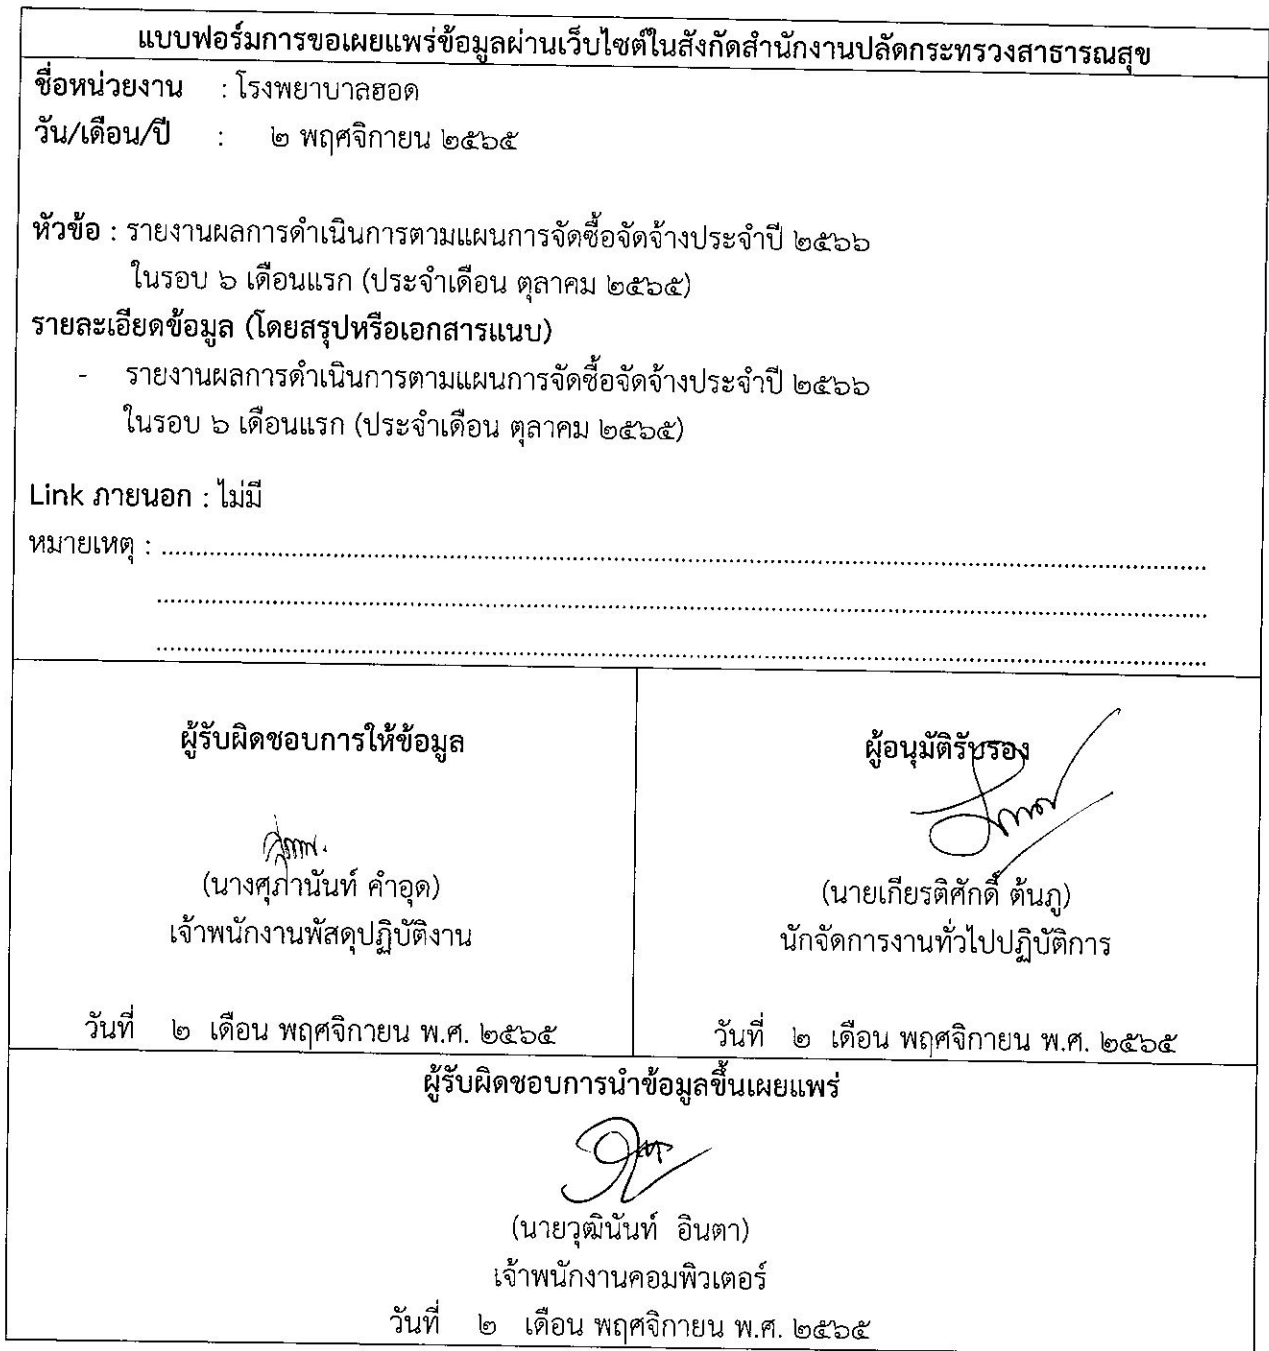 แบบฟอร์มการขอเผยแพร่ข้อมูลผ่านเว็บไซต์ในสังกัดสำนักงานปลัดกระทรวงสาธารณสุข
ชื่อหน่วยงาน : โรงพยาบาลฮอด
วัน/เดือน/ปี : ๒ พฤศจิกายน ๒๕๖๕
หัวข้อ : รายงานผลการดำเนินการตามแผนการจัดซื้อจัดจ้างประจำปี ๒๕๖๖
ในรอบ ๖ เดือนแรก (ประจำเดือน ตุลาคม ๒๕๖๕)
รายละเอียดข้อมูล (โดยสรุปหรือเอกสารแนบ)
- รายงานผลการดำเนินการตามแผนการจัดซื้อจัดจ้างประจำปี ๒๕๖๖
ในรอบ ๖ เดือนแรก (ประจำเดือน ตุลาคม ๒๕๖๕)
Link ภายนอก : ไม่มี
หมายเหตุ :
ผู้รับผิดชอบการให้ข้อมูล
(นางศุภานันท์ คำอุด)
เจ้าพนักงานพัสดุปฏิบัติงาน
วันที่ ๒ เดือน พฤศจิกายน พ.ศ. ๒๕๖๕
ผู้อนุมัติรับรอง
(นายเกียรติศักดิ์ ต้นภู)
นักจัดการงานทั่วไปปฏิบัติการ
วันที่ ๒ เดือน พฤศจิกายน พ.ศ. ๒๕๖๕
ผู้รับผิดชอบการนำข้อมูลขึ้นเผยแพร่
(นายวุฒินันท์ อินตา)
เจ้าพนักงานคอมพิวเตอร์
วันที่ ๒ เดือน พฤศจิกายน พ.ศ. ๒๕๖๕